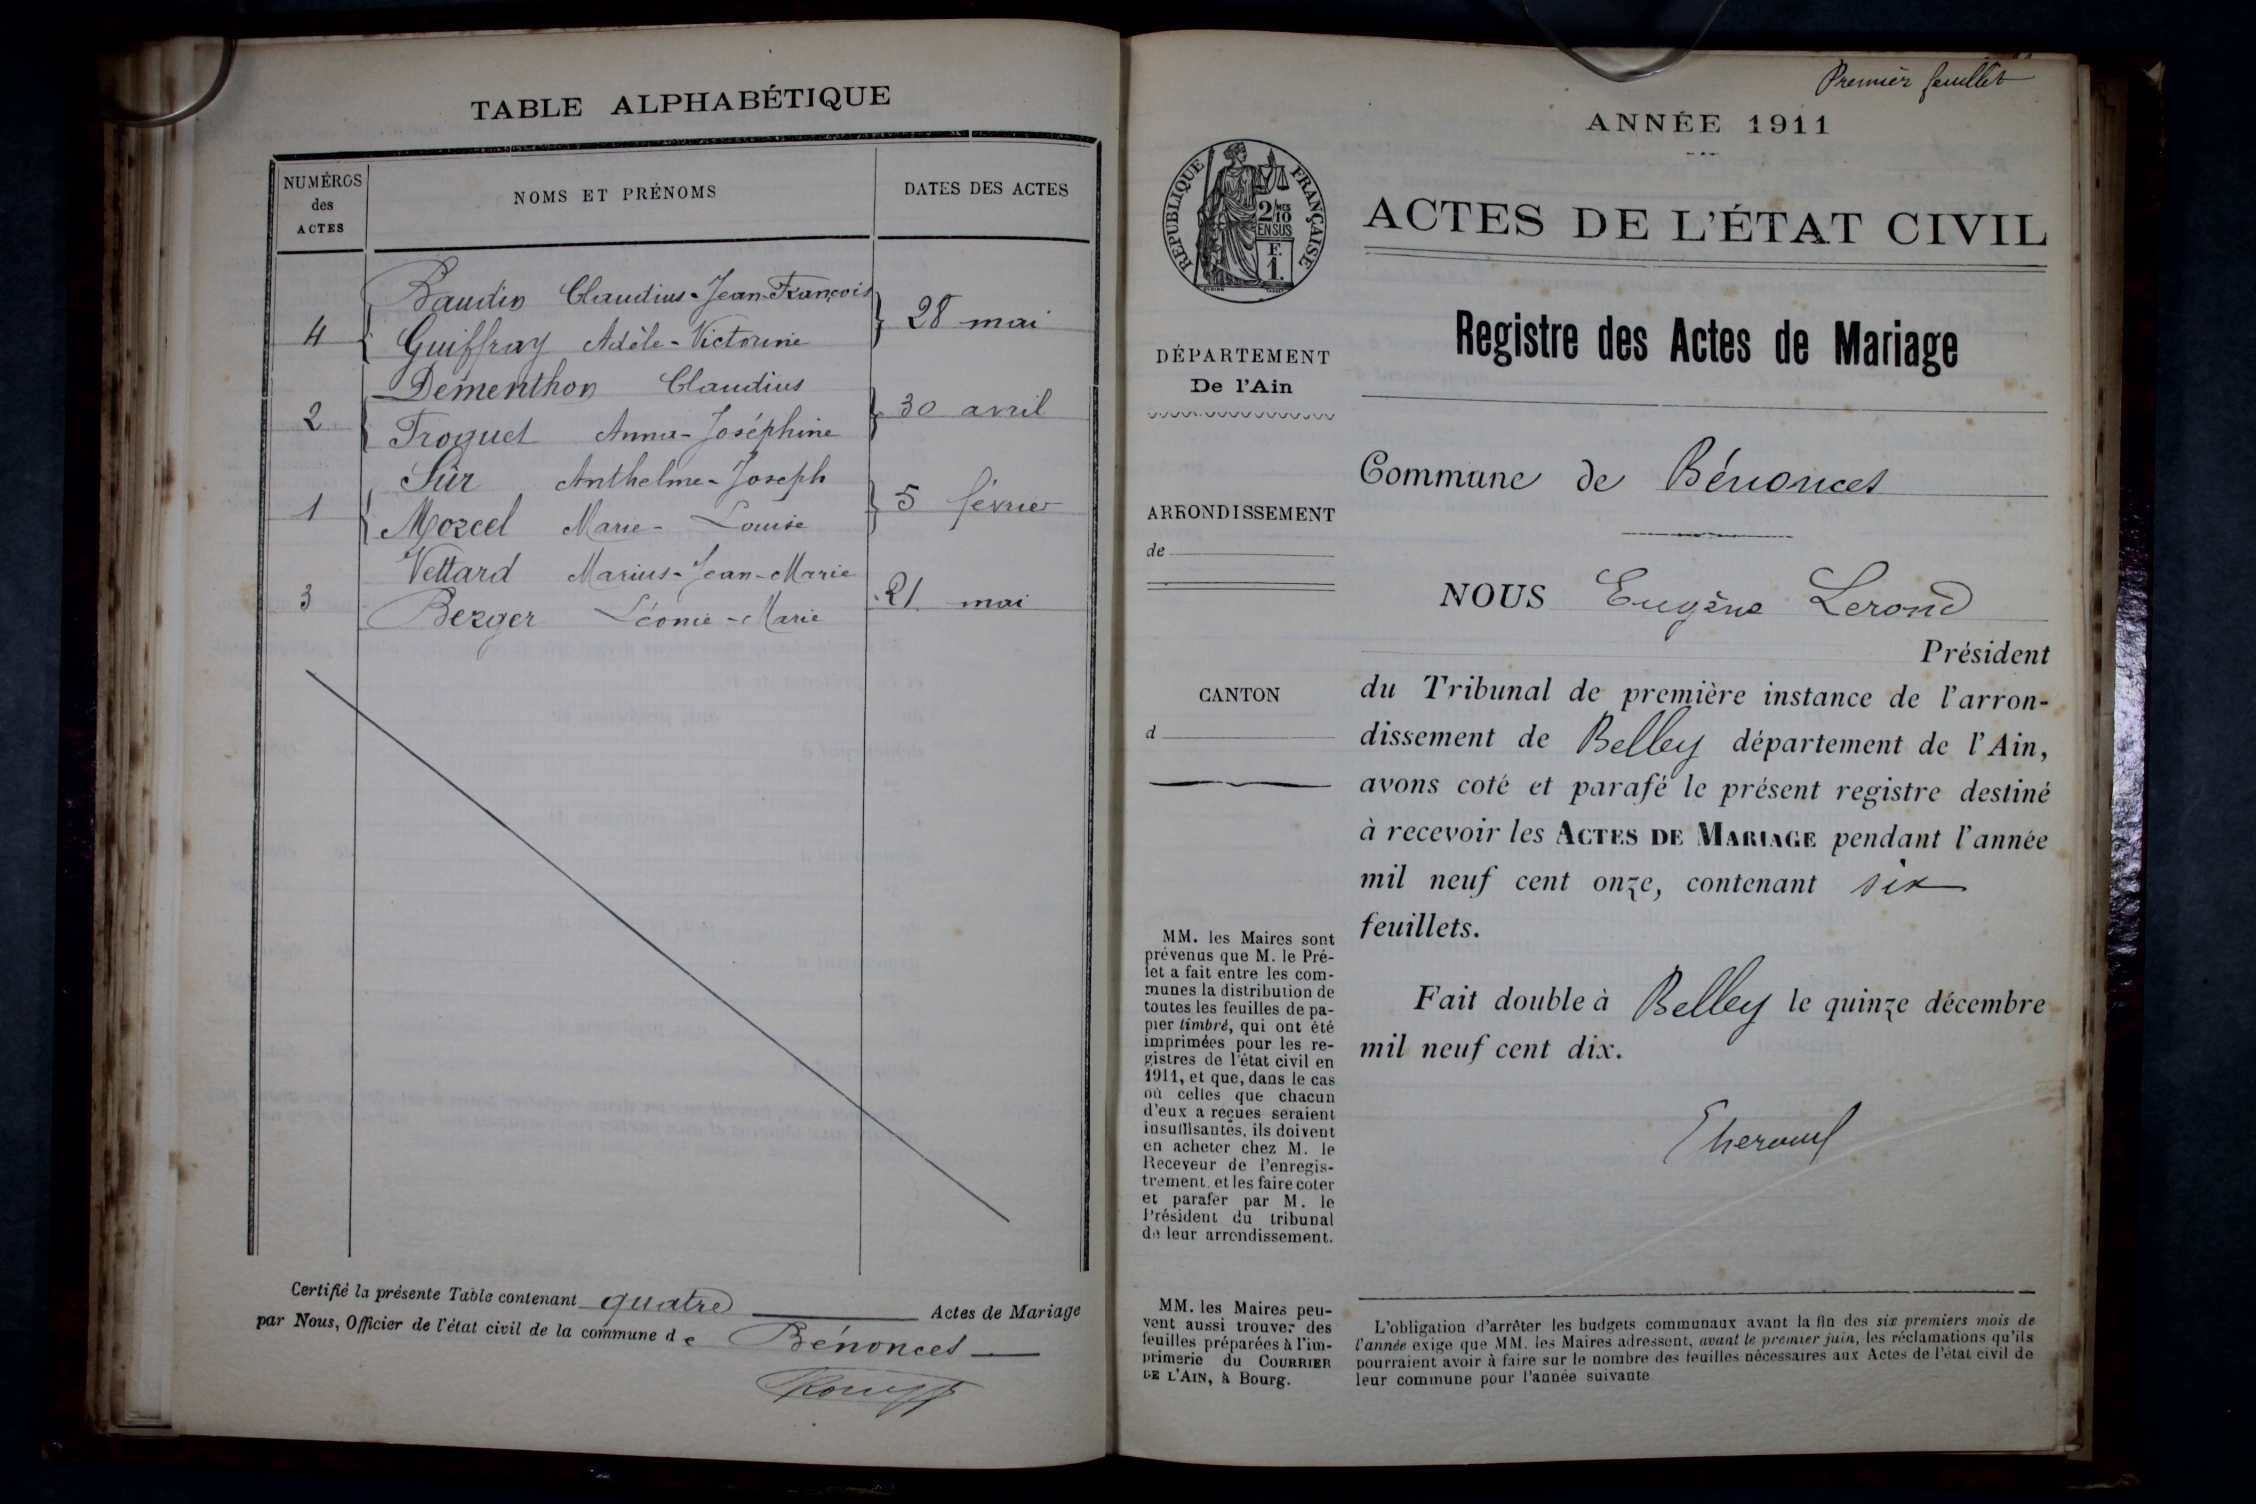 TABLE ALPHABÉTIQUE
NUMÉROS
des
ACTES
NOMS ET PRÉNOMS
DATES DES ACTES
Baudin Claudius-Jean-François
4 28 mai
Guiffray Adèle-Victorine
Dementhon Claudius
2 30 avril
Troquet Anna-Joséphine
Sûr Anthelme-Joseph
1 5 février
Morcel Marie-Louise
Vettard Marius-Jean-Marie
3 21 mai
Berger Léonie-Marie
Certifié la présente Table contenant quatre Actes de Mariage
par Nous, Officier de l'état civil de la commune de Bénonces
Premier feuillet
ANNÉE 1911
ACTES DE L'ÉTAT CIVIL
RÉPUBLIQUE FRANÇAISE
2/MES
10
EN SUS
F.
1.
Registre des Actes de Mariage
DÉPARTEMENT
De l'Ain
ARRONDISSEMENT
de
CANTON
d
MM. les Maires sont
prévenus que M. le Pré-
fet a fait entre les com-
munes la distribution de
toutes les feuilles de pa-
pier timbré, qui ont été
imprimées pour les re-
gistres de l'état civil en
1911, et que, dans le cas
où celles que chacun
d'eux a reçues seraient
insuffisantes, ils doivent
en acheter chez M. le
Receveur de l'enregis-
trement. et les faire coter
et parafer par M. le
Président du tribunal
de leur arrondissement.
MM. les Maires peu-
vent aussi trouver des
feuilles préparées à l'im-
primerie du COURRIER
DE L'AIN, à Bourg.
Commune de Bénonces
NOUS Eugène Lerond
Président
du Tribunal de première instance de l'arron-
dissement de Belley département de l'Ain,
avons coté et parafé le présent registre destiné
à recevoir les ACTES DE MARIAGE pendant l'année
mil neuf cent onze, contenant six
feuillets.
Fait double à Belley le quinze décembre
mil neuf cent dix.
L'obligation d'arrêter les budgets communaux avant la fin des six premiers mois de
l'année exige que MM. les Maires adressent, avant le premier juin, les réclamations qu'ils
pourraient avoir à faire sur le nombre des feuilles nécessaires aux Actes de l'état civil de
leur commune pour l'année suivante